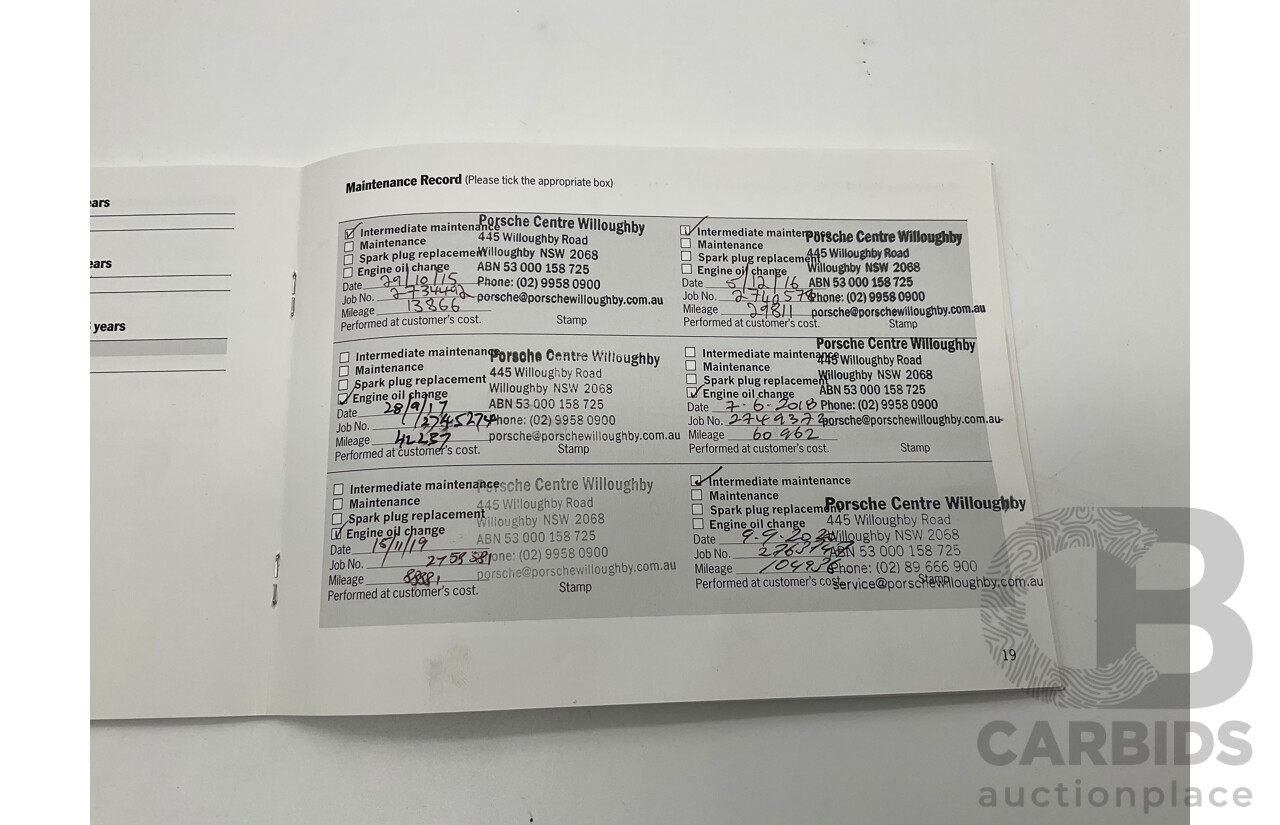 ears
ears
years
Maintenance Record (Please tick the appropriate box)
Intermediate maintenance
Maintenance
Spark plug replacement
Engine oil change
Date 29/10/15
Job No. 2734492
Mileage 13866
Performed at customer's cost.
Porsche Centre Willoughby
445 Willoughby Road
Willoughby NSW 2068
ABN 53 000 158 725
Phone: (02) 9958 0900
porsche@porschewilloughby.com.au
Stamp
Intermediate maintenance
Maintenance
Spark plug replacement
Engine oil change
Date 5/12/16
Job No.
Mileage 29811
Performed at customer's cost.
Porsche Centre Willoughby
445 Willoughby Road
Willoughby NSW 2068
ABN 53 000 158 725
Phone: (02) 9958 0900
porsche@porschewilloughby.com.au
Stamp
Intermediate maintenance
Maintenance
Spark plug replacement
Engine oil change
Date 28/9/17
Job No. 2745274
Mileage 42237
Performed at customer's cost.
Porsche Centre Willoughby
445 Willoughby Road
Willoughby NSW 2068
ABN 53 000 158 725
Phone: (02) 9958 0900
porsche@porschewilloughby.com.au
Stamp
Intermediate maintenance
Maintenance
Spark plug replacement
Engine oil change
Date 7-6-2018
Job No. 2749373
Mileage 60962
Performed at customer's cost.
Porsche Centre Willoughby
445 Willoughby Road
Willoughby NSW 2068
ABN 53 000 158 725
Phone: (02) 9958 0900
porsche@porschewilloughby.com.au
Stamp
Intermediate maintenance
Maintenance
Spark plug replacement
Engine oil change
Date 15/11/19
Job No. 2758381
Mileage
Performed at customer's cost.
Porsche Centre Willoughby
445 Willoughby Road
Willoughby NSW 2068
ABN 53 000 158 725
Phone: (02) 9958 0900
porsche@porschewilloughby.com.au
Stamp
Intermediate maintenance
Maintenance
Spark plug replacement
Engine oil change
Date
Job No.
Mileage
Performed at customer's cost.
Porsche Centre Willoughby
445 Willoughby Road
Willoughby NSW 2068
ABN 53 000 158 725
Phone: (02) 89 666 900
service@porschewilloughby.com.au
Stamp
19
CB
CARBIDS
auctionplace